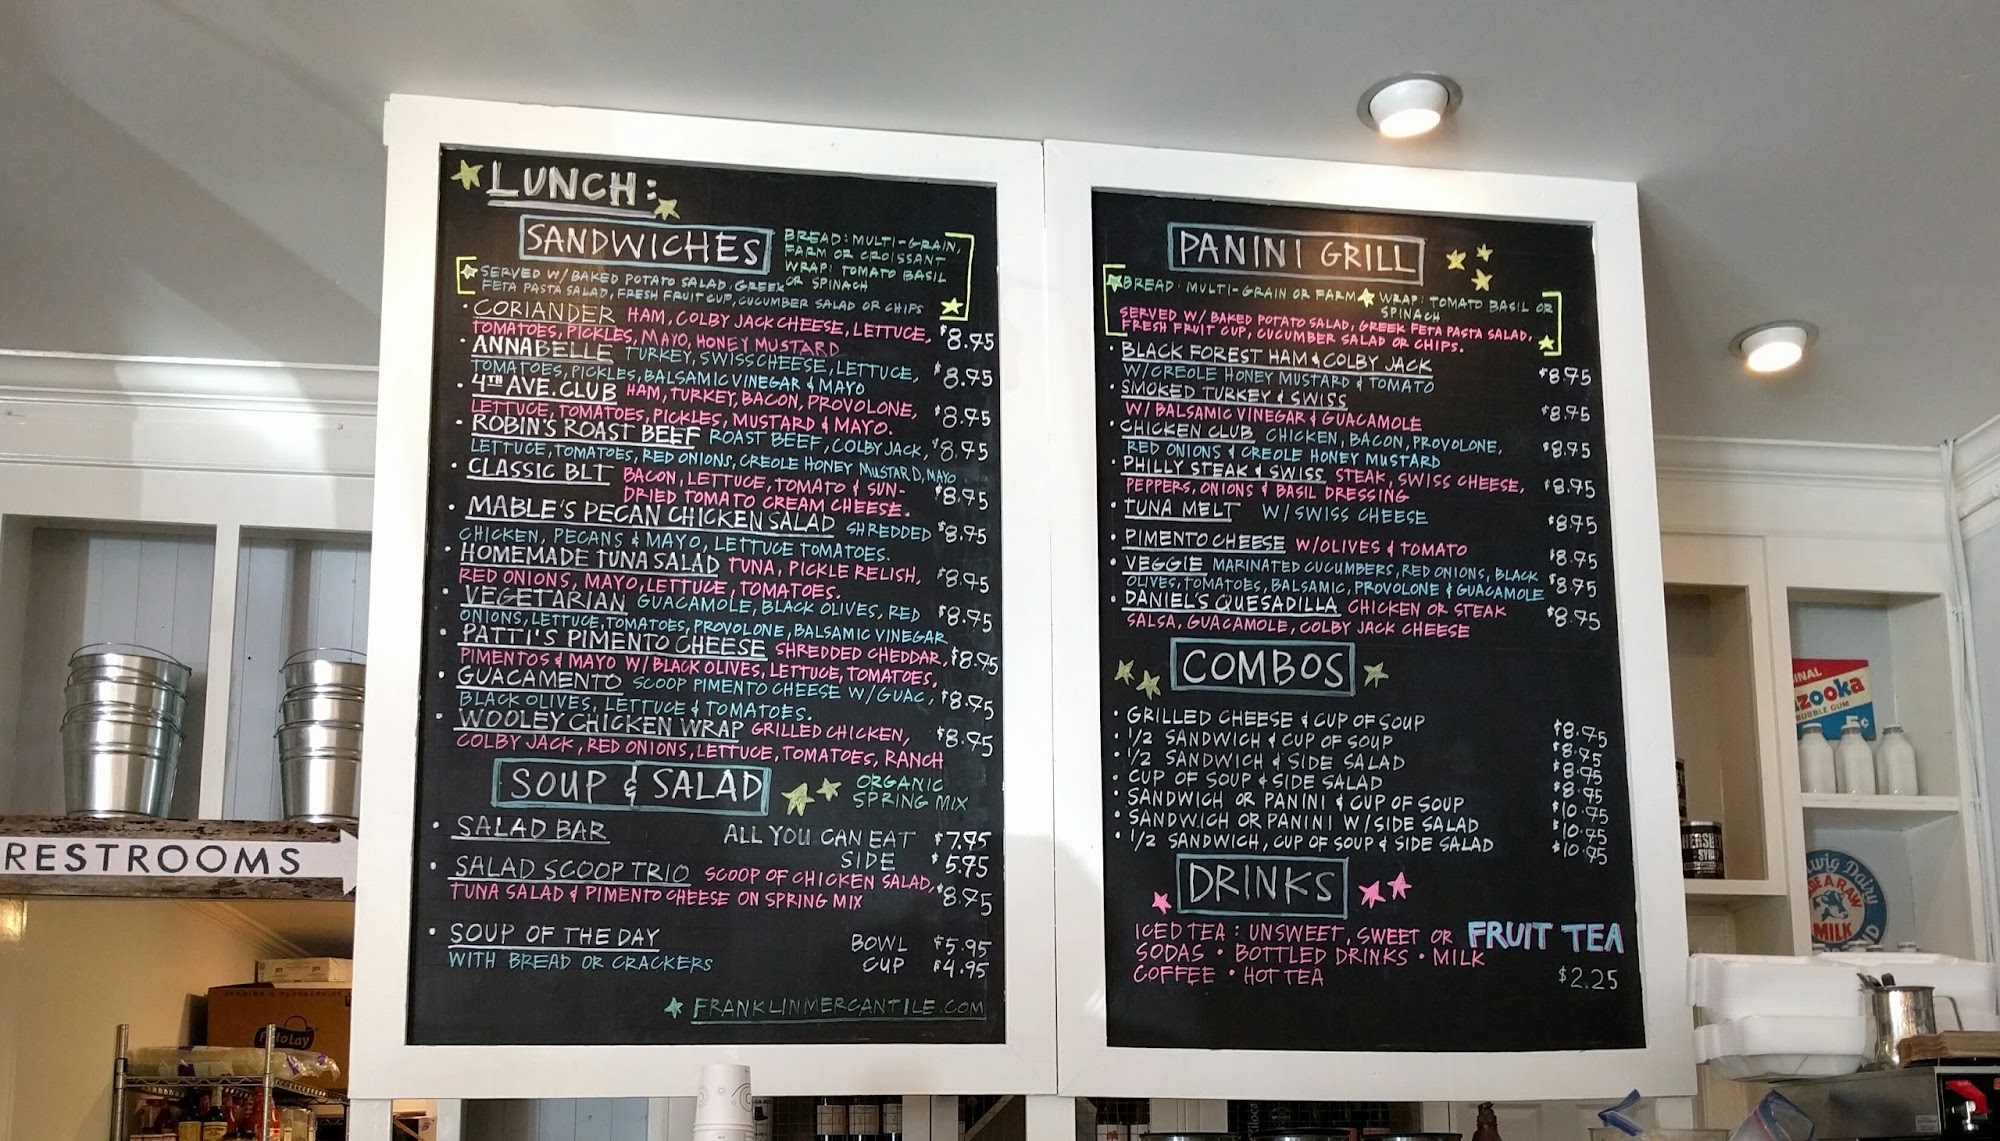 LUNCH:
SANDWICHES
BREAD: MULTI-GRAIN,
FARM OR CROISSANT
WRAP: TOMATO BASIL
OR SPINACH
SERVED W/ BAKED POTATO SALAD, GREEK
FETA PASTA SALAD, FRESH FRUIT CUP, CUCUMBER SALAD OR CHIPS
• CORIANDER HAM, COLBY JACK CHEESE, LETTUCE,
TOMATOES, PICKLES, MAYO, HONEY MUSTARD $8.95
• ANNABELLE TURKEY, SWISS CHEESE, LETTUCE,
TOMATOES, PICKLES, BALSAMIC VINEGAR & MAYO $8.95
• 4TH AVE. CLUB HAM, TURKEY, BACON, PROVOLONE,
LETTUCE, TOMATOES, PICKLES, MUSTARD & MAYO. $8.95
• ROBIN'S ROAST BEEF ROAST BEEF, COLBY JACK, $8.95
LETTUCE, TOMATOES, RED ONIONS, CREOLE HONEY MUSTARD, MAYO
• CLASSIC BLT BACON, LETTUCE, TOMATO & SUN-
DRIED TOMATO CREAM CHEESE. $8.95
• MABLE'S PECAN CHICKEN SALAD SHREDDED $8.95
CHICKEN, PECANS & MAYO, LETTUCE TOMATOES.
• HOMEMADE TUNA SALAD TUNA, PICKLE RELISH, $8.95
RED ONIONS, MAYO, LETTUCE, TOMATOES.
• VEGETARIAN GUACAMOLE, BLACK OLIVES, RED $8.95
ONIONS, LETTUCE, TOMATOES, PROVOLONE, BALSAMIC VINEGAR
• PATTI'S PIMENTO CHEESE SHREDDED CHEDDAR, $8.95
PIMENTOS & MAYO W/ BLACK OLIVES, LETTUCE, TOMATOES,
• GUACAMENTO SCOOP PIMENTO CHEESE W/ GUAC, $8.95
BLACK OLIVES, LETTUCE & TOMATOES.
• WOOLEY CHICKEN WRAP GRILLED CHICKEN, $8.95
COLBY JACK, RED ONIONS, LETTUCE, TOMATOES, RANCH
SOUP & SALAD
ORGANIC
SPRING MIX
• SALAD BAR ALL YOU CAN EAT $7.95
SIDE $5.95
• SALAD SCOOP TRIO SCOOP OF CHICKEN SALAD, $8.95
TUNA SALAD & PIMENTO CHEESE ON SPRING MIX
• SOUP OF THE DAY BOWL $5.95
WITH BREAD OR CRACKERS CUP $4.95
FRANKLINMERCANTILE.COM
PANINI GRILL
BREAD: MULTI-GRAIN OR FARM WRAP: TOMATO BASIL OR
SPINACH
SERVED W/ BAKED POTATO SALAD, GREEK FETA PASTA SALAD,
FRESH FRUIT CUP, CUCUMBER SALAD OR CHIPS.
• BLACK FOREST HAM & COLBY JACK
W/ CREOLE HONEY MUSTARD & TOMATO $8.95
• SMOKED TURKEY & SWISS
W/ BALSAMIC VINEGAR & GUACAMOLE $8.95
• CHICKEN CLUB CHICKEN, BACON, PROVOLONE,
RED ONIONS & CREOLE HONEY MUSTARD $8.95
• PHILLY STEAK & SWISS STEAK, SWISS CHEESE,
PEPPERS, ONIONS & BASIL DRESSING $8.95
• TUNA MELT W/ SWISS CHEESE $8.95
• PIMENTO CHEESE W/ OLIVES & TOMATO $8.95
• VEGGIE MARINATED CUCUMBERS, RED ONIONS, BLACK
OLIVES, TOMATOES, BALSAMIC, PROVOLONE & GUACAMOLE $8.95
• DANIEL'S QUESADILLA CHICKEN OR STEAK $8.95
SALSA, GUACAMOLE, COLBY JACK CHEESE
COMBOS
• GRILLED CHEESE & CUP OF SOUP $8.95
• 1/2 SANDWICH & CUP OF SOUP $8.95
• 1/2 SANDWICH & SIDE SALAD $8.95
• CUP OF SOUP & SIDE SALAD $8.95
• SANDWICH OR PANINI & CUP OF SOUP $10.95
• SANDWICH OR PANINI W/ SIDE SALAD $10.95
• 1/2 SANDWICH, CUP OF SOUP & SIDE SALAD $10.95
DRINKS
ICED TEA: UNSWEET, SWEET OR FRUIT TEA
SODAS • BOTTLED DRINKS • MILK
COFFEE • HOT TEA $2.25
RESTROOMS
BUBBLE GUM
5¢
MILK